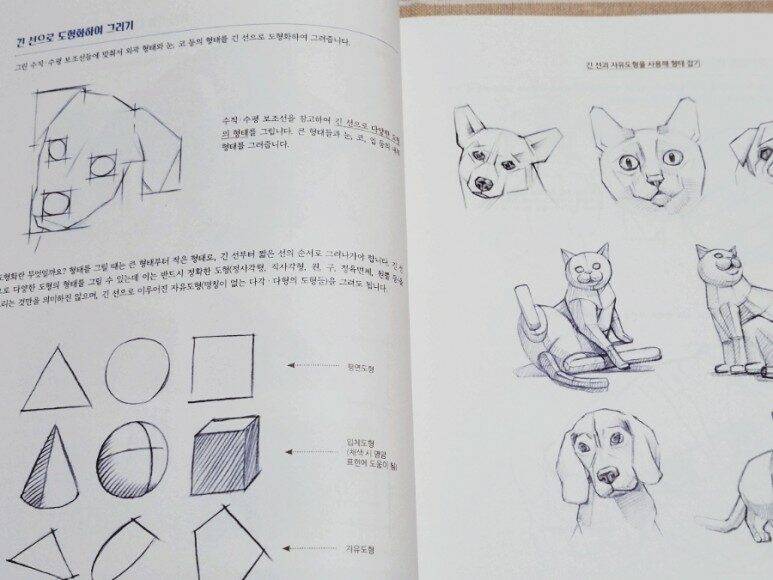 긴 선으로 도형화하여 그리기
그린 수직·수평 보조선들에 맞춰서 외곽 형태와 눈, 코 등의 형태를 긴 선으로 도형화하여 그려줍니다.
수직·수평 보조선을 참고하여 긴 선으로 다양한 도형
의 형태를 그립니다. 큰 형태들과 눈, 코, 입 등의
형태를 그려줍니다.
도형화란 무엇일까요? 형태를 그릴 때는 큰 형태부터 작은 형태로, 긴 선부터 짧은 선의 순서로 그려나가야 합니다. 긴 선
으로 다양한 도형의 형태를 그릴 수 있는데 이는 반드시 정확한 도형(정사각형, 직사각형, 원, 구, 정육면체, 원뿔 등)을
그리는 것만을 의미하진 않으며, 긴 선으로 이루어진 자유도형(명칭이 없는 다각·다형의 도형들)을 그려도 됩니다.
평면도형
입체도형
(채색 시 명암
표현에 도움이 됨)
자유도형
긴 선과 자유도형을 사용해 형태 잡기